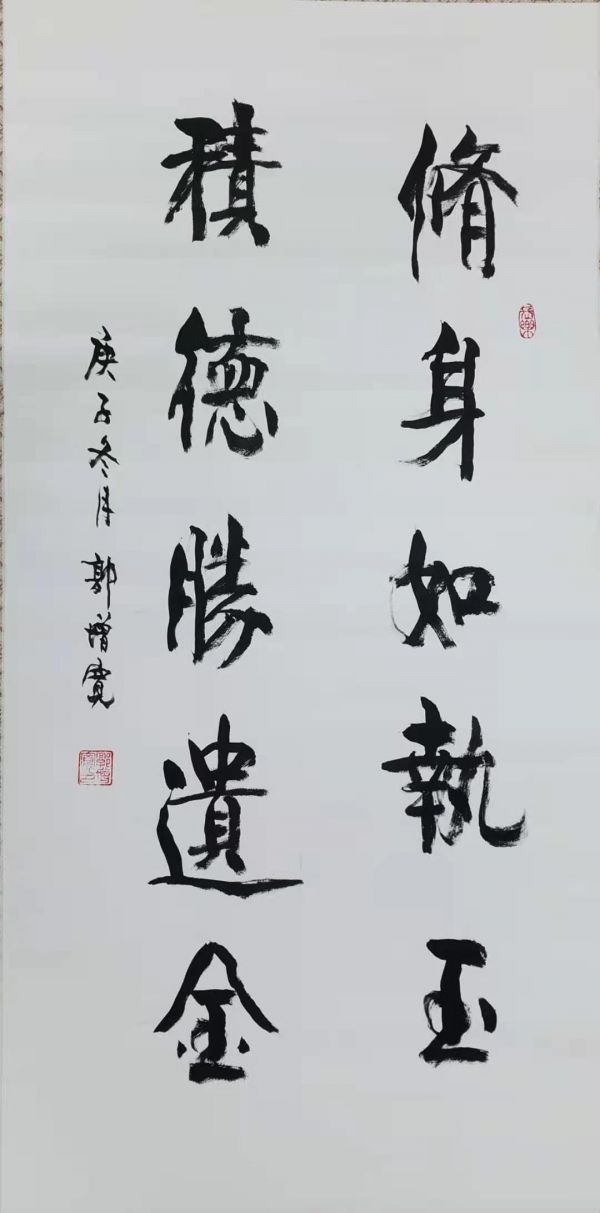 脩身如執玉
積德勝遺金
庚子冬月 郭增寬